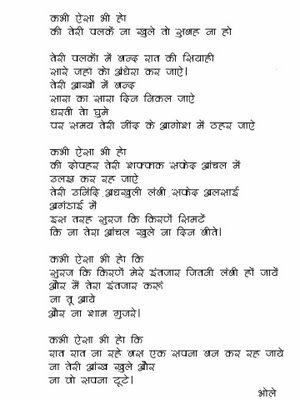 कभी ऐसा भी हो
की तेरी पलकें ना खुले तो सुबह ना हो
तेरी पलकों में बन्द रात की सियाही
सारे जहां को अंधेरा कर जाऐ।
तेरी आखों में बन्द
सारा का सारा दिन निकल जाऐ
धरती तो घुमे
पर समय तेरी नींद के आगोश में ठहर जाऐ
कभी ऐसा भी हो
की दोपहर तेरी शफ्फक सफेद आंचल में
उलझ कर रह जाऐ
तेरी उनिंदि अधखुली लंबी सफेद अलसाई
अगंडाई में
इस तरह सुरज कि किरणें सिमटें
कि ना तेरा आंचल खुले ना दिन बीते।
कभी ऐसा भी हो कि
सुरज कि किरणें मेरे इंतजार जितनी लंबी हों जायें
और मैं तेरा इंतजार करूं
ना तू आये
और ना शाम गुजरे।
कभी ऐसा भी हो कि
रात रात ना रहे बस एक सपना बन कर रह जाये
ना तेरी आंख खुले और
ना वो सपना टूटे।
भोले